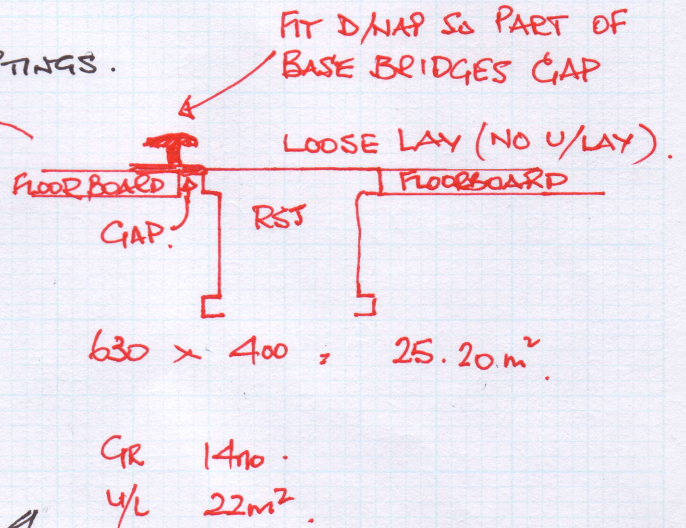 FIT D/NAP SO PART OF
BASE BRIDGES GAP
TINGS.
LOOSE LAY (NO U/LAY).
FLOORBOARD
FLOORBOARD
GAP.
RSJ
630 x 400 = 25.20 m²
GR 14no.
U/L 22m²